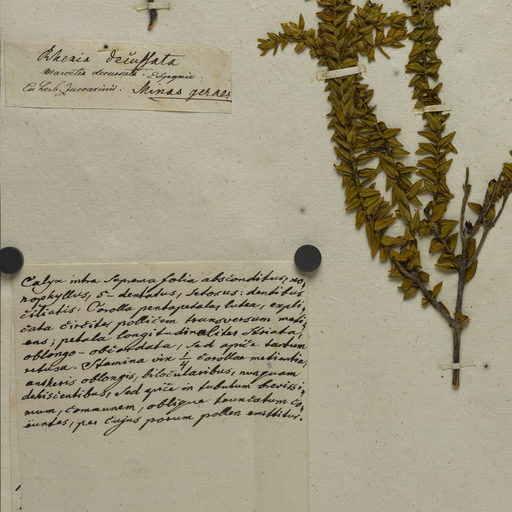 Rhexia decussata
Marcetia decussata
Ex herb. Zuccarinii. Minas geraes
Calyx intra suprema folia absconditus, mo-
nophyllus, 5-dentatus, setosus: dentibus
ciliatis. Corolla pentapetala, lutea, expli-
cata circiter pollicem transversum meti-
ens; petala longitudinaliter striata,
oblongo-obcordata, sed apice tantum
retusa. Stamina vix 1/4 corollae metientia,
antheris oblongis, bilocularibus, nunquam
dehiscentibus, sed apice in tubulum brevissi-
mum, communem, oblique truncatum co-
euntes, per cujus porum pollen emittitur.